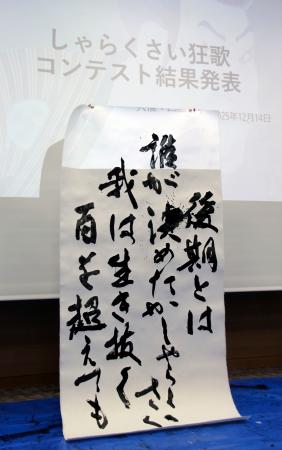 しゃらくさい狂歌
コンテスト結果発表
2025年12月14日
後期とは
誰が決めたかしゃらくさく
我は生き抜く
百を超えても